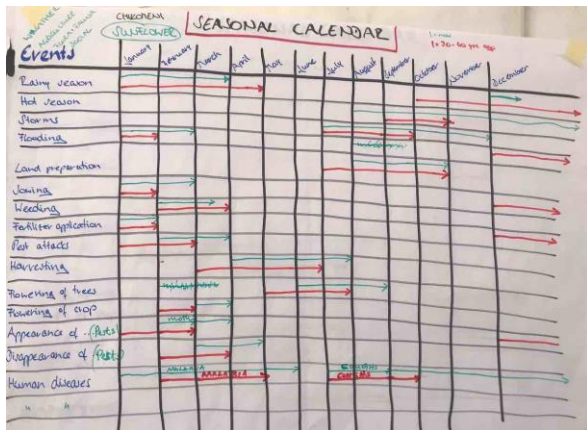 WEATHER
AGRICULTURE
SOCIAL
SUNFLOWER
SEASONAL CALENDAR
Events
January
February
March
April
May
June
July
August
September
October
November
December
Rainy season
Hot season
Storms
Flooding
Land preparation
Sowing
Weeding
Fertilizer application
Pest attacks
Harvesting
Flowering of trees
Flowering of crop
Appearance of .. (Pests)
Disappearance of (Pests)
Human diseases
MALARIA
MALARIA
COUGHS
" "